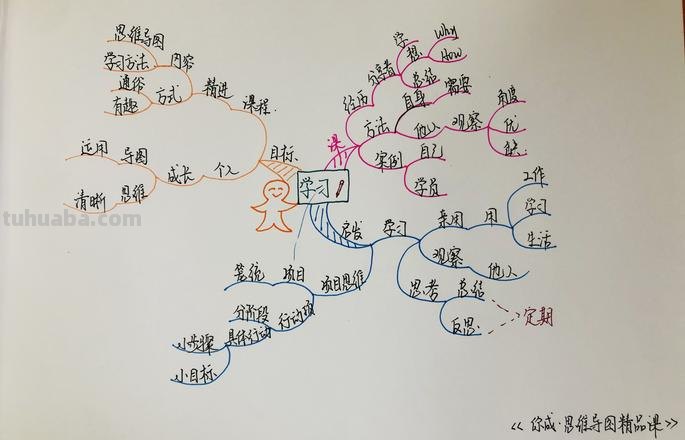 思维导图
学习方法
内容
通俗
有趣
方式
精进
课程
运用
导图
清晰
思维
成长
个人
目标
学习
课
经历
分享者
学
想
总结
Why
How
方法
自身
需要
他人
观察
角度
优
缺
案例
自己
学员
启发
学习
采用
用
工作
学习
生活
观察
他人
思考
总结
反思
定期
项目思维
项目
笼统
行动项
分阶段
具体行动
小步骤
小目标
tuhuaba.com
思维导图精品课》